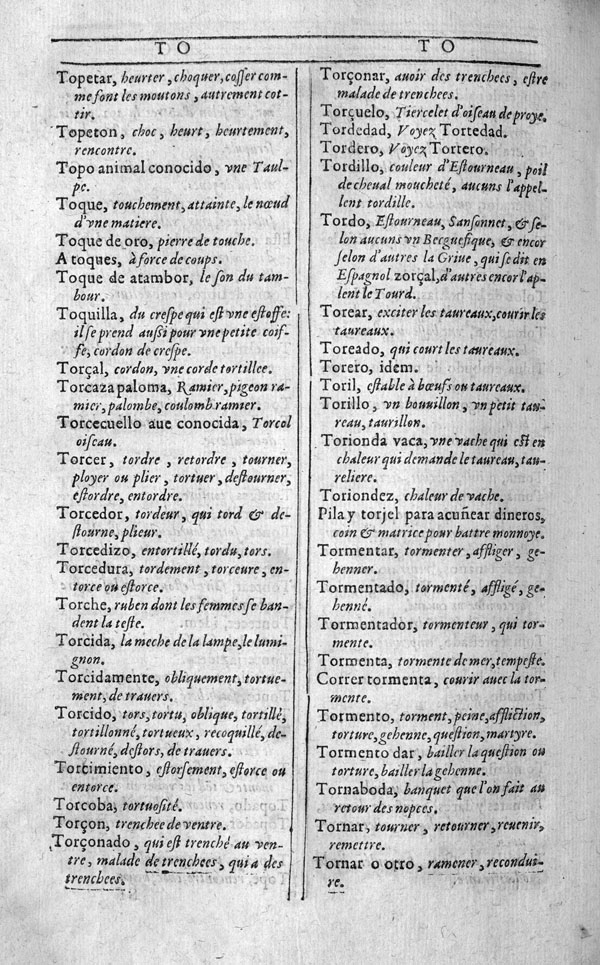 TO
TO
Topetar, heurter, choquer, coſſer com-
me font les moutons, autrement cot-
tir.
Topeton, choc, heurt, heurtement,
rencontre.
Topo animal conocido, vne Taul-
pe.
Toque, touchement, attainte, le nœud
d'vne matiere.
Toque de oro, pierre de touche.
A toques, à force de coups.
Toque de atambor, le ſon du tam-
bour.
Toquilla, du creſpe qui eſt vne eſtoffe:
il ſe prend auſſi pour vne petite coif-
fe, cordon de creſpe.
Torçal, cordon, vne corde tortillee.
Torcaza paloma, Ramier, pigeon ra-
mier, palombe, coulomb ramier.
Torcecuello aue conocida, Torcol
oiſeau.
Torcer, tordre, retordre, tourner,
ployer ou plier, tortuer, deſtourner,
eſtordre, entordre.
Torcedor, tordeur, qui tord & de-
ſtourne, plieur.
Torcedizo, entortillé, tordu, tors.
Torcedura, tordement, torceure, en-
torce ou eſtorce.
Torche, ruben dont les femmes ſe ban-
dent la teſte.
Torcida, la meche de la lampe, le lumi-
gnon.
Torcidamente, obliquement, tortue-
ment, de trauers.
Torcido, tors, tortu, oblique, tortillé,
tortillonné, tortueux, recoquillé, de-
ſtourné, deſtors, de trauers.
Torcimiento, eſtorſement, eſtorce ou
entorce.
Torcoba, tortuoſité.
Torçon, trenchee de ventre.
Torçonado, qui eſt trenché au ven-
tre, malade de trenchees, qui a des
trenchees.
Torçonar, auoir des trenchees, eſtre
malade de trenchees.
Torçuelo, Tiercelet d'oiſeau de proye.
Tordedad, Voyez Tortedad.
Tordero, Voyez Tortero.
Tordillo, couleur d'Eſtourneau, poil
de cheual moucheté, aucuns l'appel-
lent tordille.
Tordo, Eſtourneau, Sanſonnet, & ſe-
lon aucuns vn Berguefique, & encor
ſelon d'autres la Griue, qui ſe dit en
Eſpagnol zorçal, d'autres encor l'ap-
lent le Tourd.
Torear, exciter les taureaux, courir les
taureaux.
Toreado, qui court les taureaux.
Torero, idem.
Toril, eſtable à bœufs ou taureaux.
Torillo, vn bouuillon, vn petit tau-
reau, taurillon.
Torionda vaca, vne vache qui eſt en
chaleur qui demande le taureau, tau-
reliere.
Toriondez, chaleur de vache.
Pila y torjel para acuñear dineros,
coin & matrice pour battre monnoye.
Tormentar, tormenter, affliger, ge-
henner.
Tormentado, tormenté, affligé, ge-
henné.
Tormentador, tormenteur, qui tor-
mente.
Tormenta, tormente de mer, tempeſte.
Correr tormenta, courir auec la tor-
mente.
Tormento, torment, peine, affliction,
torture, gehenne, queſtion, martyre.
Tormento dar, bailler la queſtion ou
torture, bailler la gehenne.
Tornaboda, banquet que l'on fait au
retour des nopces.
Tornar, tourner, retourner, reuenir,
remettre.
Tornar o otro, ramener, reconduï-
re.